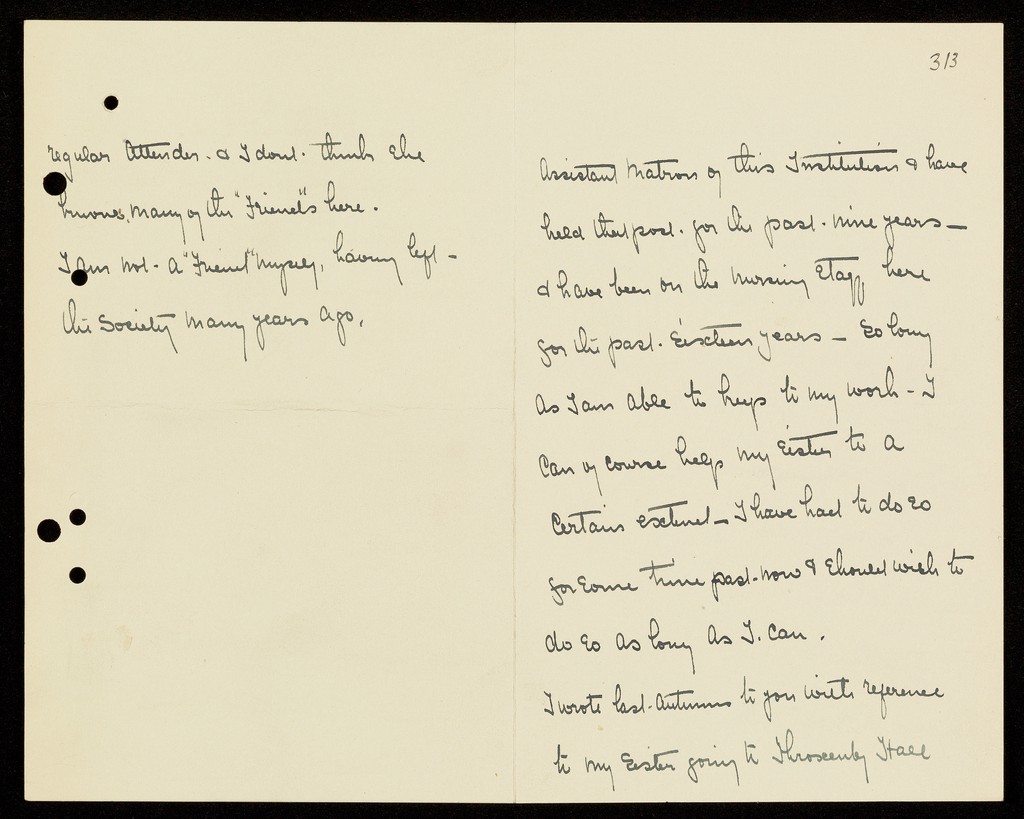 regular attender - & I dont. think she
knows, many of the "Friend"s here.
I am not - a "Friend" myself, having left -
the Society many years ago.
313
Assistant Matron of this Institution & have
held that post. for the past. nine years —
& have been on the Nursing Staff, here
for the past. Sixteen years — So long
as I am able to keep to my work - I
can of course help my Sister to a
certain extent — I have had to do so
for some time past. now & should wish to
do so as long as I. can.
I wrote last. Autumn to you with reference
to my Sister going to Throxenby Hall